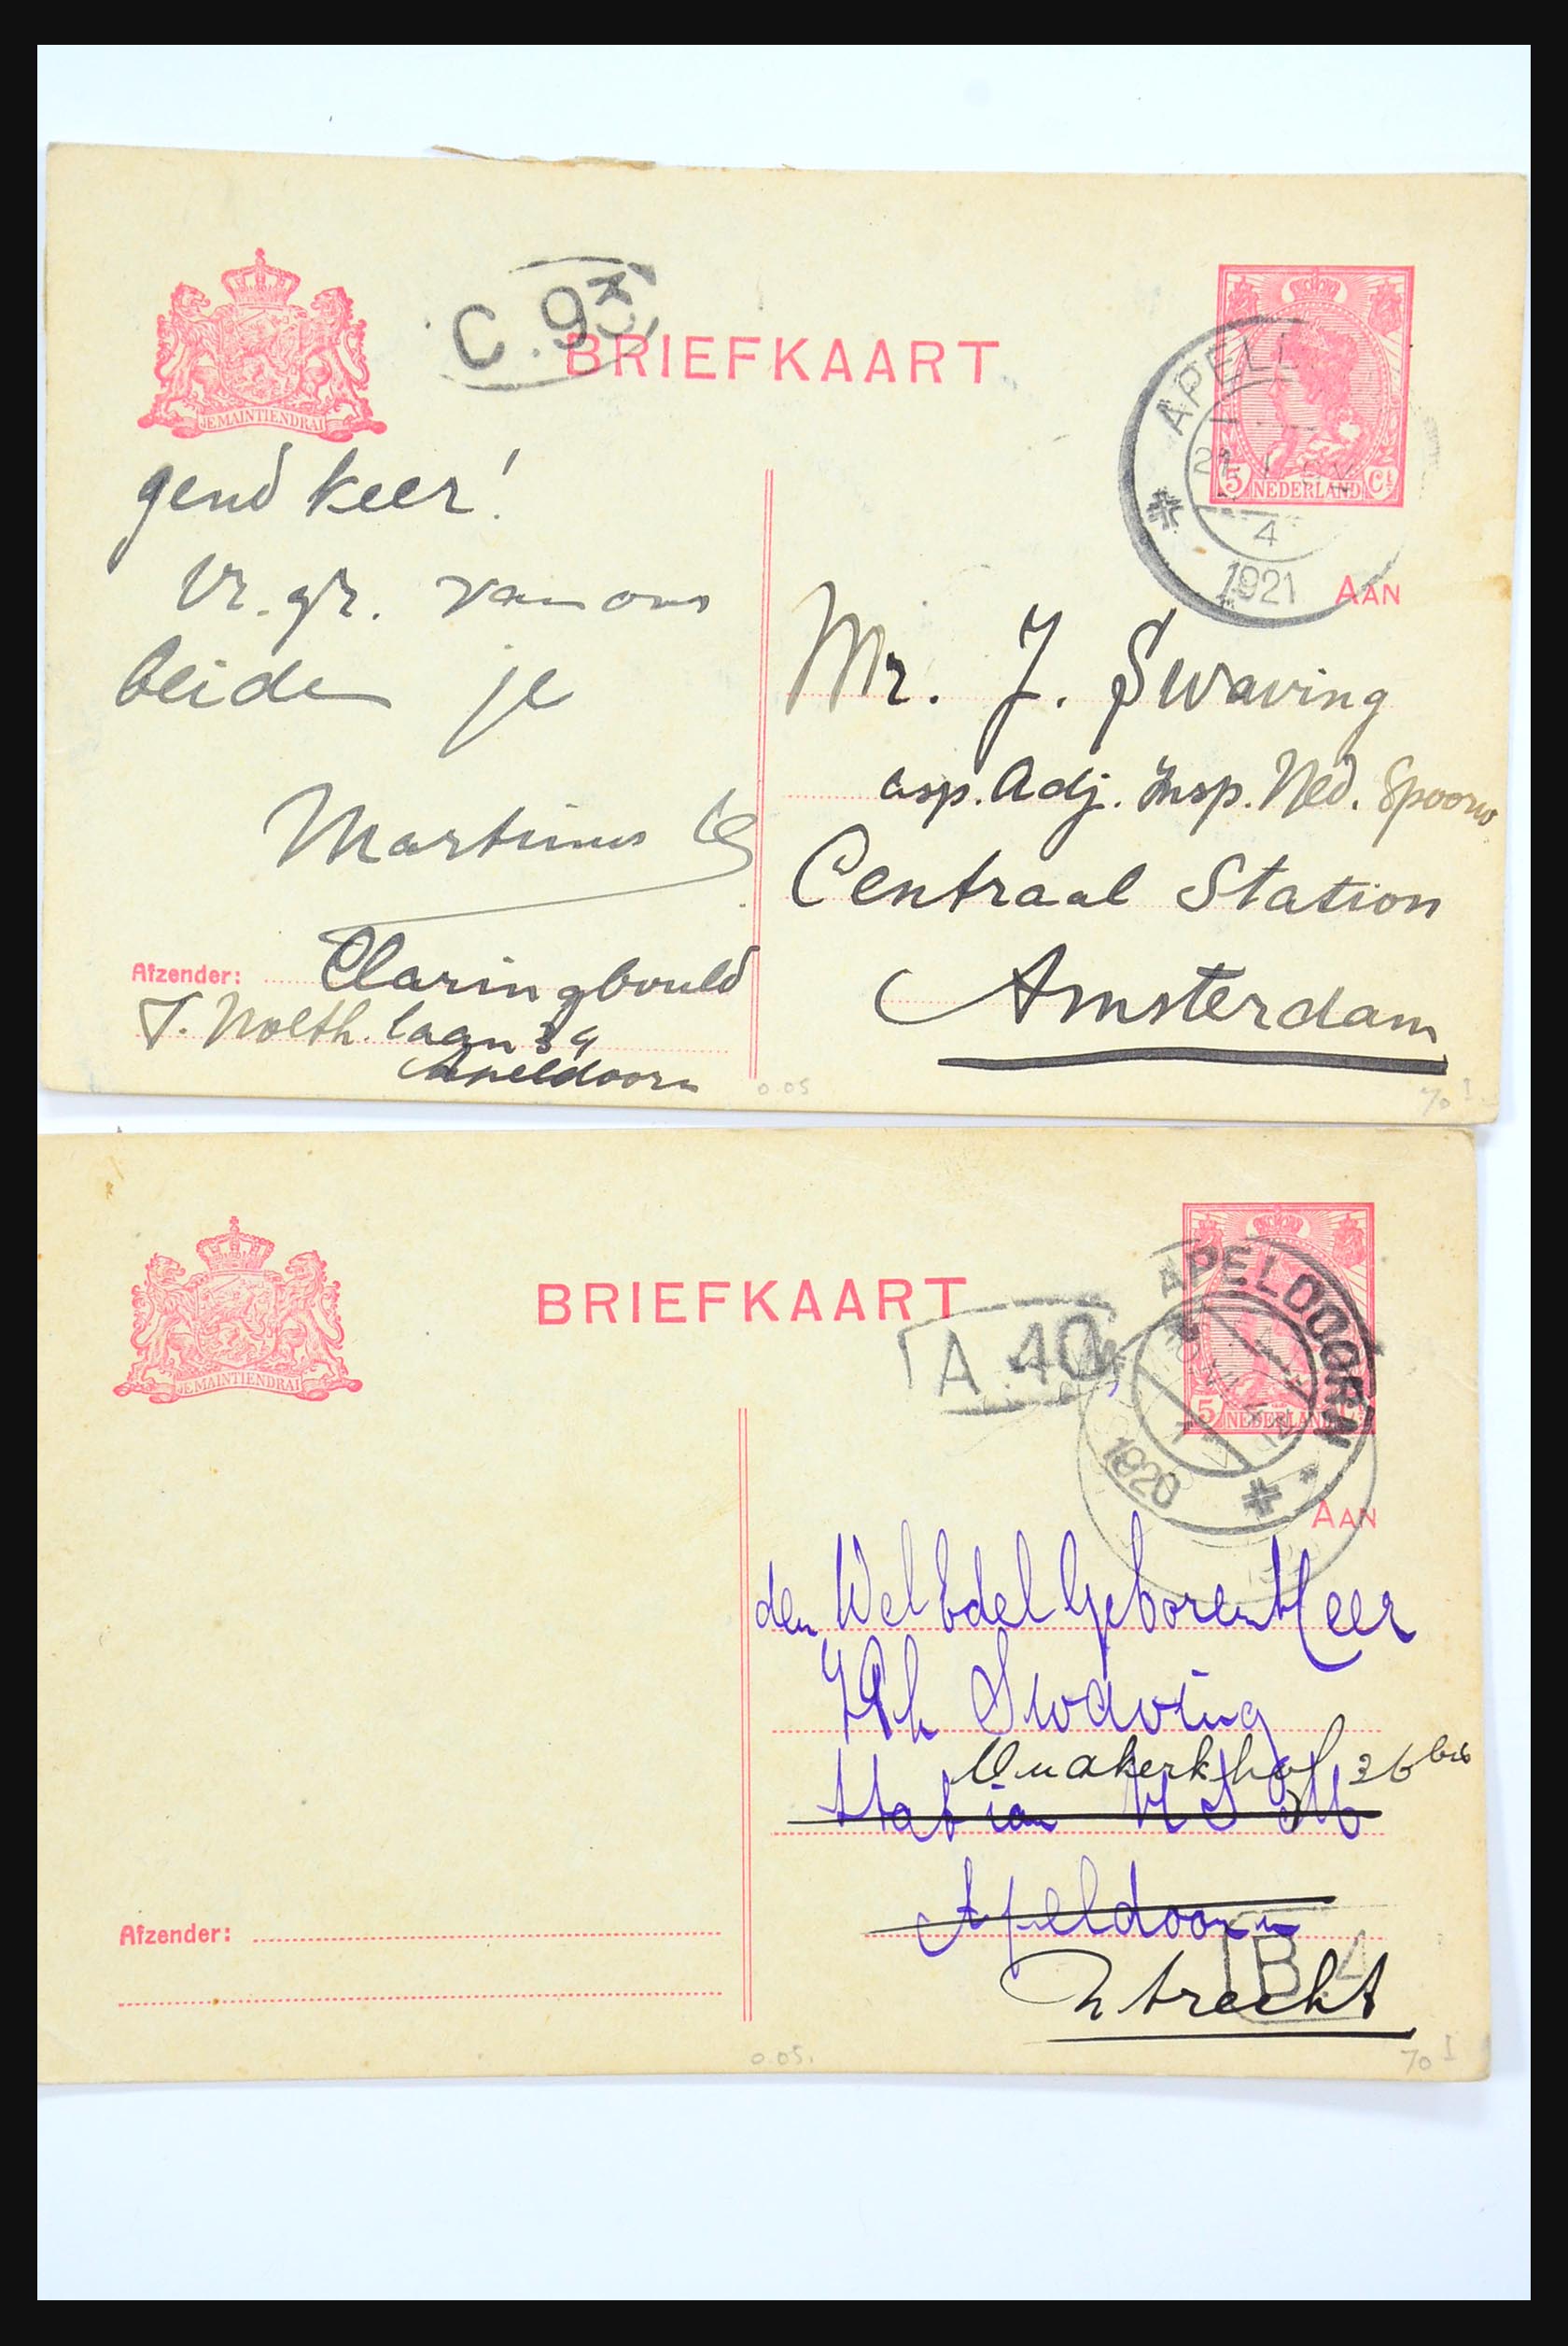 C. 93
BRIEFKAART
JE MAINTIENDRAI
APEL
21
4
1921
5 NEDERLAND Ct
AAN
gend keer!
Vr. gr. van ons
beiden je
Martinus
Mr. J. Swaving
asp. Adj. Insp. Ned. Spoorw
Centraal Station
Amsterdam
Afzender: Claringbould
J. Nolth. laan 39
Apeldoorn
0.05
70 I
BRIEFKAART
A 40
JE MAINTIENDRAI
APELDOORN
1920
5 NEDERLAND
AAN
den WelEdelGeboren Heer
JPh Swaving
Station
36 bis
Apeldoorn
B. 4
Utrecht
Afzender:
0.05.
70 I